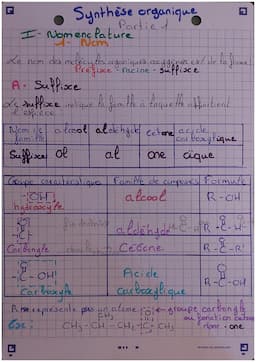 Synthèse organique
Partie 1
I - Nomenclature
1- Nom
Le nom des molécules organiques oxygénées est de la forme:
Préfixe - racine - suffixe
A. Suffixe
Le suffixe indique la famille à laquelle appartient
l'espèce
Nom de famille alcool aldéhyde cétone acide carboxylique
Suffixe ol al one oïque
Groupe caractéristique Famille de composés Formule
-OH alcool R-OH
hydroxyle
aldéhyde R-C-H
Carbonyle Cétone R-C-R'
-C-OH Acide R-C-OH
Carboxyle carboxylique
R représente un atome
groupe carbonyle
ou fonction cétone
nom - one
CH3-CH-CH2-C-CH3